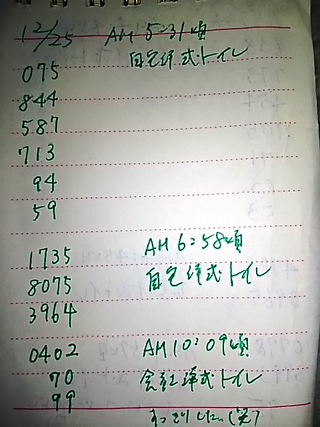 12/25 AM 5:31頃
自宅洋式トイレ
075
844
587
713
94
59
1735 AM 6:58頃
8075 自宅洋式トイレ
3964
0402 AM 10:09頃
70 会社洋式トイレ
99
すっきりした(笑)